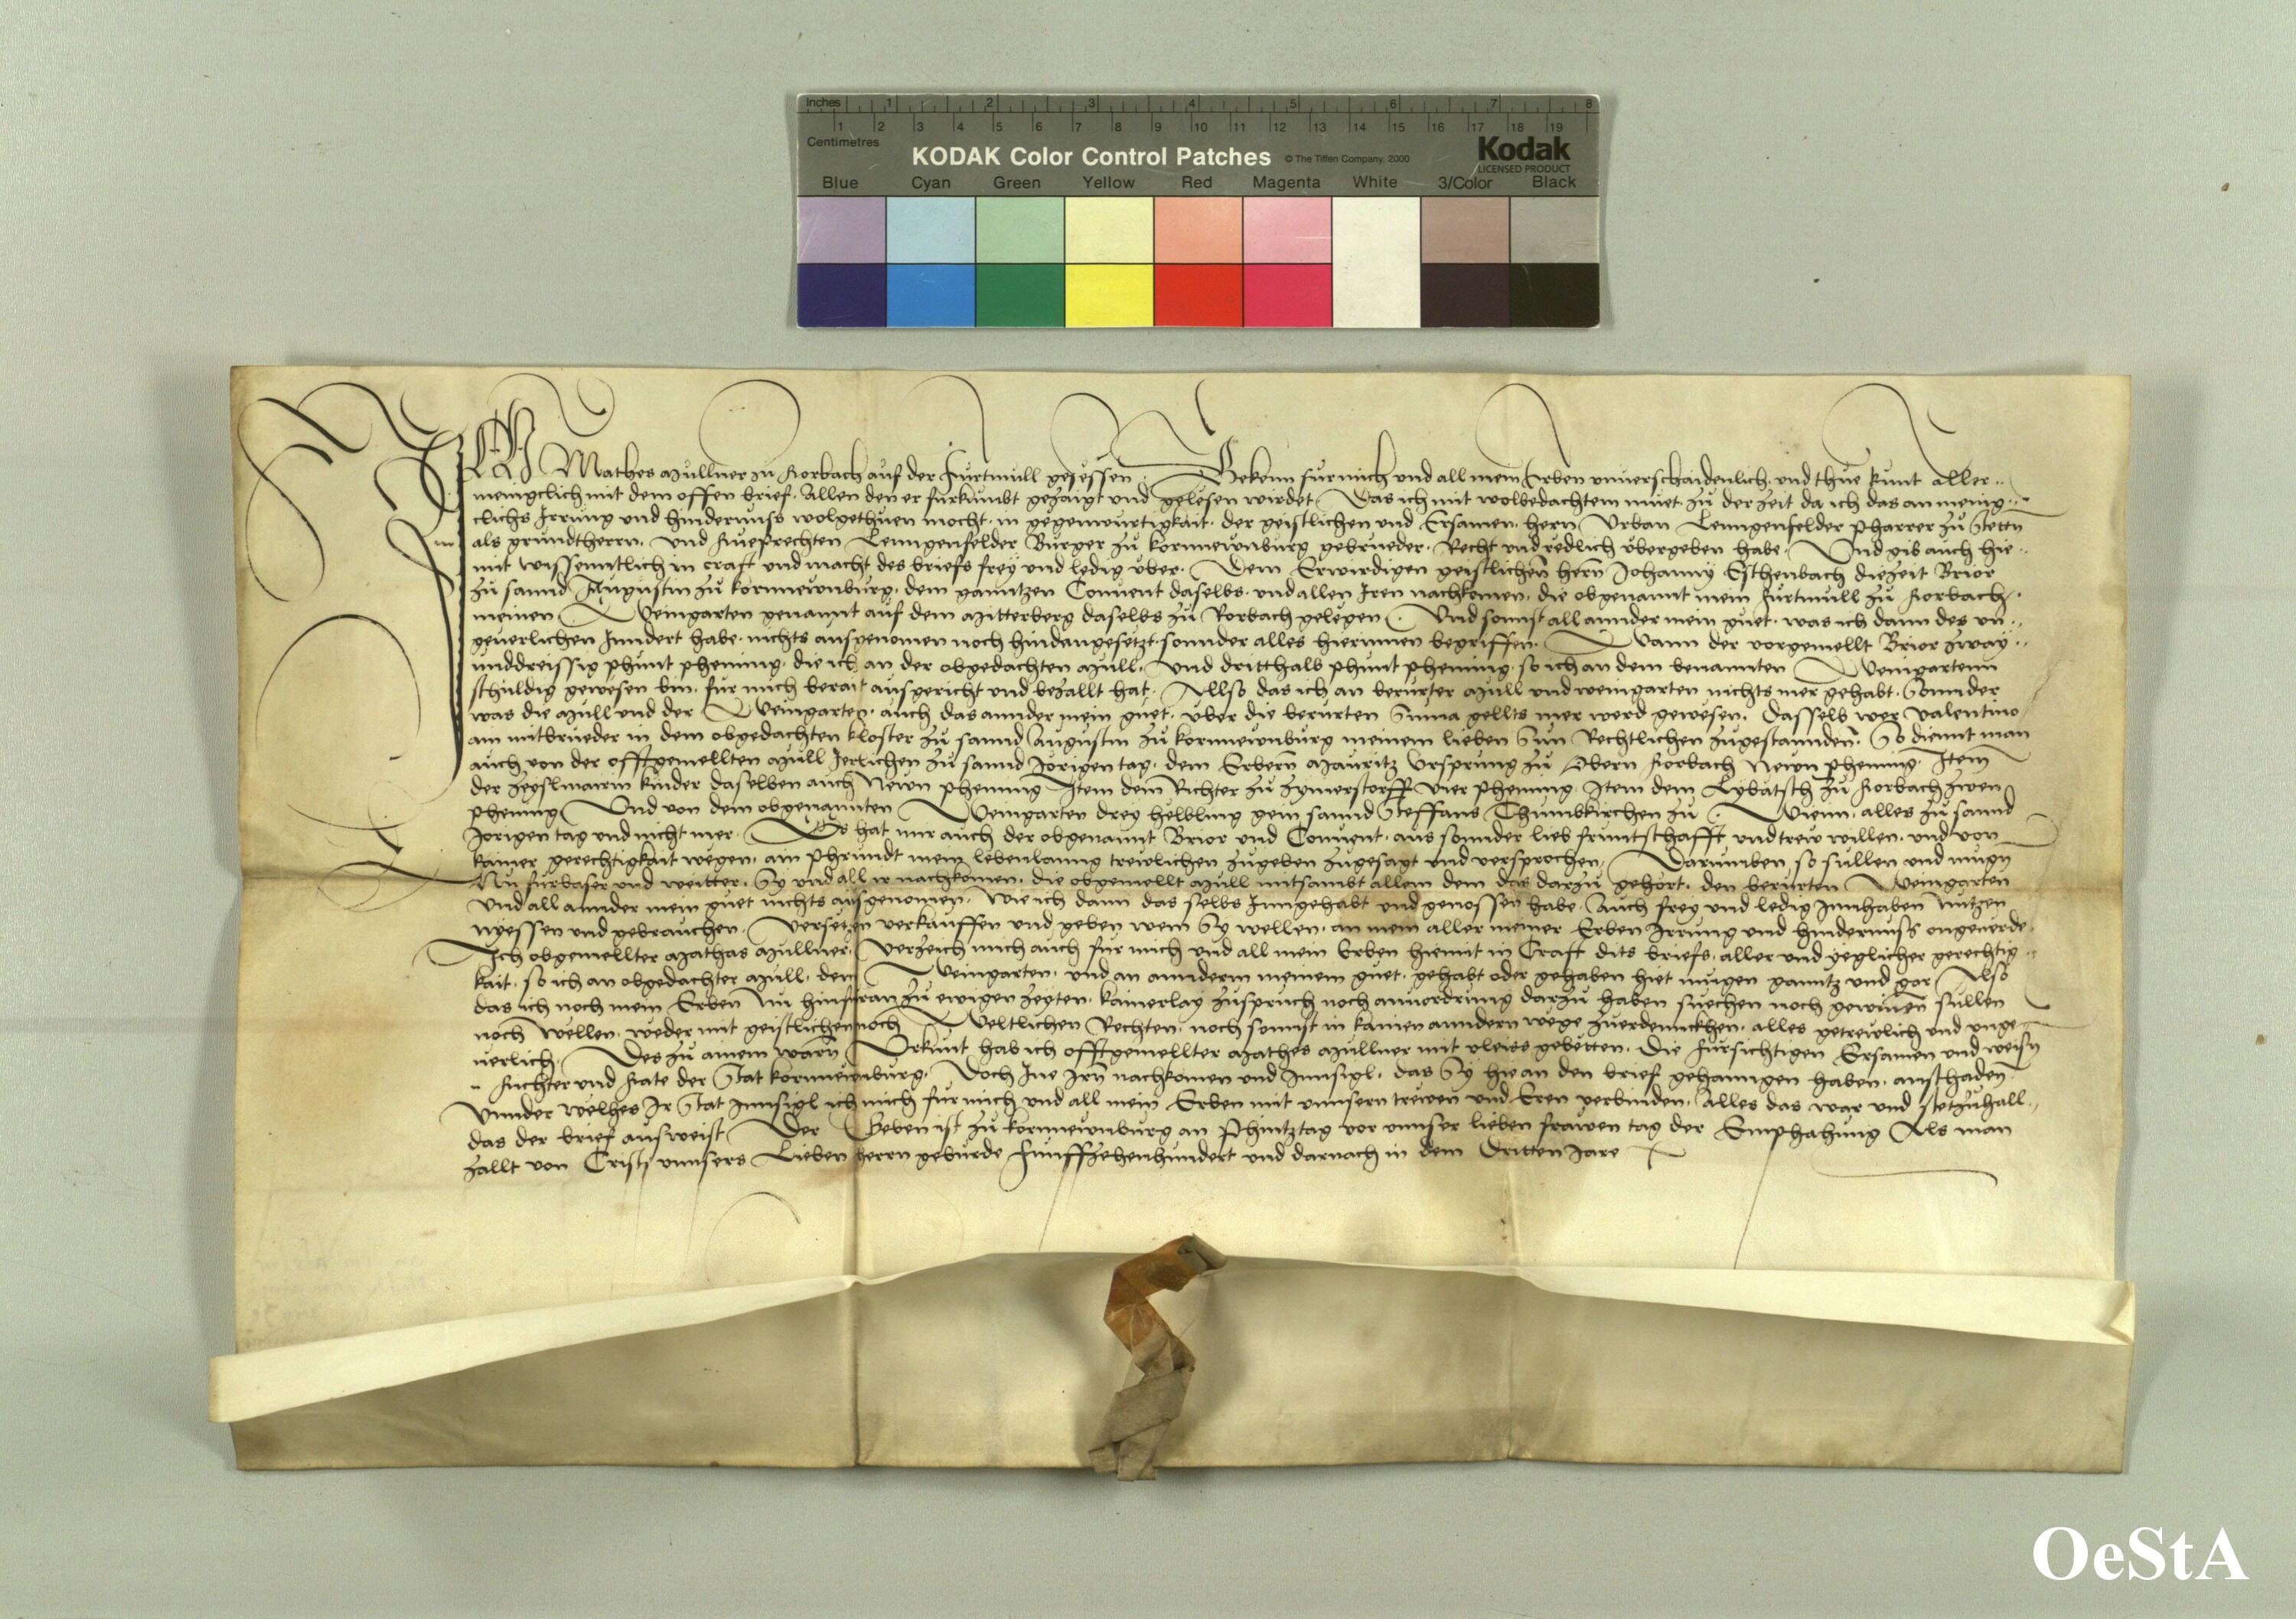 Inches 1 2 3 4 5 6 7 8
1 2 3 4 5 6 7 8 9 10 11 12 13 14 15 16 17 18 19
Centimetres
KODAK Color Control Patches © The Tiffen Company, 2000 Kodak
LICENSED PRODUCT
Blue Cyan Green Yellow Red Magenta White 3/Color Black
ICH Mathes Mullner zu Rorbach auf der Furtmull gesessen Bekenn fur mich und all mein Erben unverschaidenlich und thue kunt aller
menigclich mit dem offen brief, Allen den er furkumbt gezaigt und gelesen wirdet, Das ich mit wolbedachtem muet zu der zeit da ich das an menig
clichs Irrung und hindernuss wolgethuen mocht, in gegenwurtigkait der geistlichen und Ersamen herrn Urban Lenngenfelder Pharrer zu Stettn
als grundtherrn, und Rueprechten Lenngenfelder Burger zu kornnewnburg gebrueder, Recht und redlich ubergeben habe, Und gib auch hie
mit wissenntlich in craft und macht des briefs frey und ledig uber, Dem Erwirdigen geistlichen herrn Johanny Esthenbach diezeit Brior
zu sannd Augustin zu kornnewnburg, dem ganntzen Convent daselbs, und allen Iren nachkomen, die obgenannt mein Furtmull zu Rorbach,
meinen Weingarten genannt auf dem Mitterberg daselbs zu Rorbach gelegen, Und sonnst all annder mein guet, was ich dann des un
geverlichen Inndert habe, nichts ausgenomen noch hindangesetzt, sonnder alles hierinnen begriffen, Wann der vorgemellt Brior zway
unddreissig phunt phening, die ich an der obgedachten Mull, und dritthalb phunt phening so ich an dem benannten Weingartenn
schuldig gewesen bin, fur mich berait ausgericht und bezallt hat, Allso das ich an berurter Mull und weingarten nichts mer gehabt, Sonnder
was die Mull und der Weingarten, auch das annder mein guet, uber die berurten Suma gellts mer werd gewesen, Dasselb wer Valentino
am mitbrueder in dem obgedachten kloster zu sannd Augustin zu kornnewnburg meinem lieben Sun Rechtlichen zugestannden, So diennt man
auch von der offtgemellten Mull Jerlichen zu sannd Jorigen tag, dem Erbern Mauritz Ursprung zu Obern Rorbach Newn phening, Item
der kinder daselben auch Newn phening Item dem Richter zu Zymerstorff vier phening, Item dem Lybatsch zu Rorbach zwen
phening Und von dem obgenannten Weingarten drey helbling gein sannd Steffans Thumbkirchen zu Wienn, alles zu sannd
Jorigen tag und nicht mer, Es hat mir auch der obgenannt Brior und Convent, aus sonnder lieb fruntschafft und trew willen, und von
kainer gerechtigkait wegen, ain phrundt mein lebenlanng trewlichen zugeben zugesagt und versprochen, Darumben so sullen und mugn
Nu furbaser und weitter, Sy und all ir nachkomen, die obgemellt Mull mitsambt allem dem das darzu gehort, den berurten Weingarten
und all annder mein guet nichts ausgenomen, Wie ich dann das selbs Inngehabt und genossen habe, Auch frey und ledig Innhaben nutzen
nyessen und gebrauchen, versetzen verkauffen und geben wem Sy wellen, an mein aller meiner Erben Irrung und hindernuss ongeverde,
Ich obgemellter Mathas Mullner, Verzeich mich auch fur mich und all mein Erben hiemit in Craft dits briefs, aller und yeglicher gerechtig
kait, so ich an obgedachter Mull, dem Weingarten, und an annderm meinem guet, gehabt oder gehaben hiet mugen ganntz und gar Also
das ich noch mein Erben Nu hinfuran zu ewigen zeyten, kainerlay zuspruch noch anvordrung darzu haben suechen noch gewinnen sullen
noch wellen, weder mit geistlichen noch Weltlichen Rechten, noch sonnst in kainen anndern wege zuerdennckhen, alles getrewlich und unge
verlich, Des zu ainem warn Urkunt hab ich offtgemellter Mathes Mullner mit vleiss gebetten, Die fursichtigen Ersamen und weisn
Richter und Rate der Stat kornnewnburg, Doch Ine Irn nachkomen und Innsigl, das Sy hie an den brief gehanngen haben, anschaden
Unnder welhes Ir Stat Innsigl ich mich fur mich und all mein Erben mit unnsern trewen und Eren verbinden, Alles das war und stet zuhall
das der brief ausweist, Der Geben ist zu kornnewnburg an Phintztag vor unnser lieben frawen tag der Emphahung Als man
zallt von Cristi unnsers Lieben herrn geburde Funffzehenhundert und darnach in dem Dritten Jare
OeStA